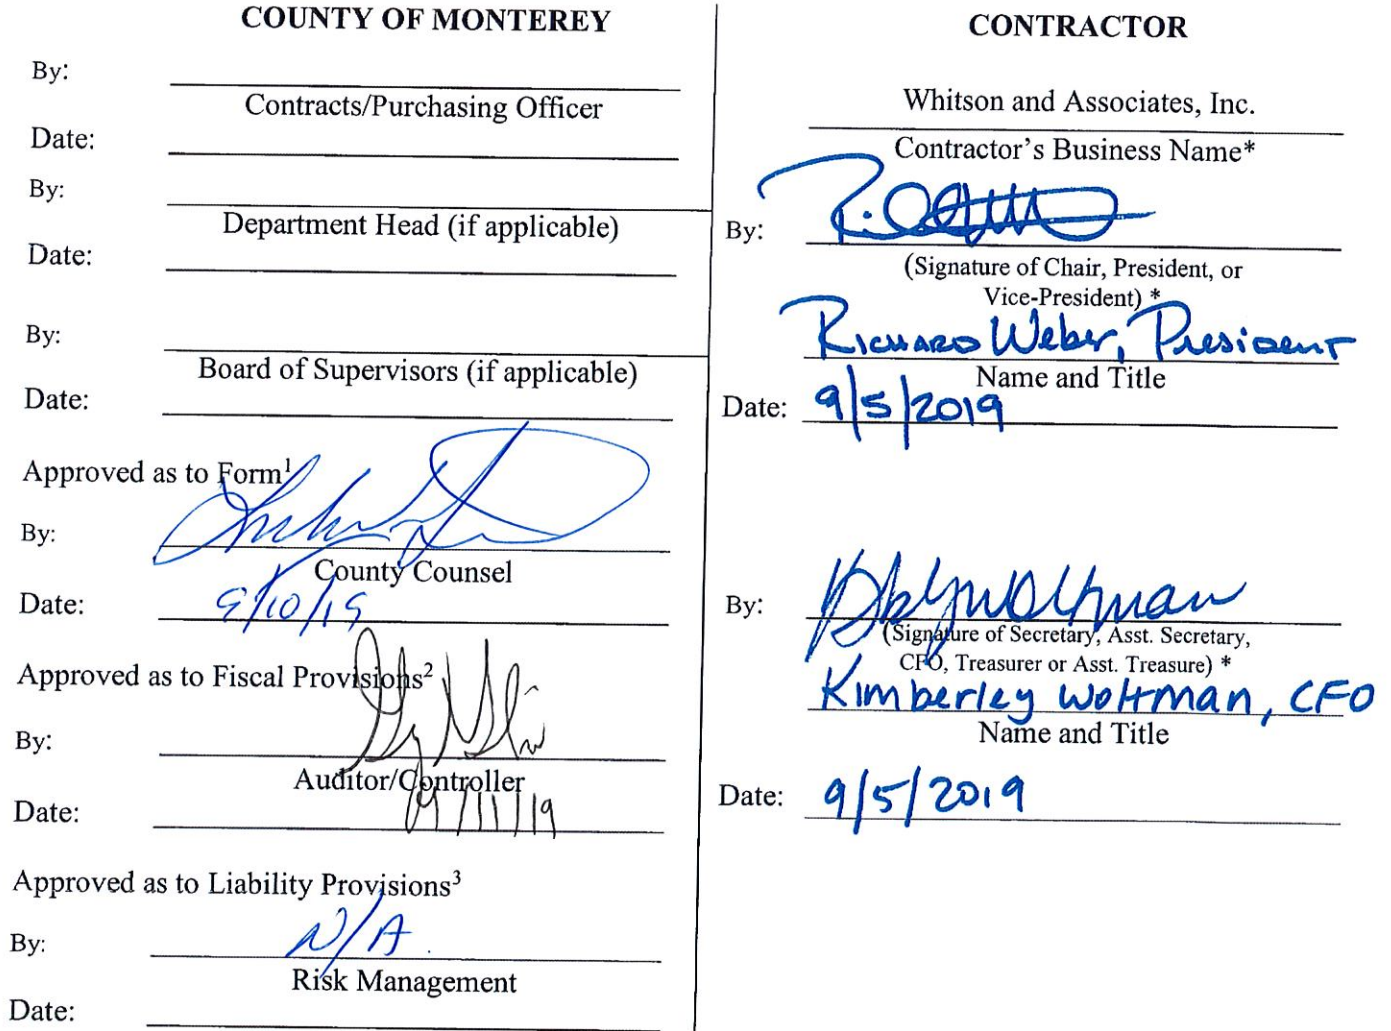 COUNTY OF MONTEREY
By:
Contracts/Purchasing Officer
Date:
By:
Department Head (if applicable)
Date:
By:
Board of Supervisors (if applicable)
Date:
Approved as to Form¹
By:
County Counsel
Date: 9/10/19
Approved as to Fiscal Provisions²
By:
Auditor/Controller
Date: 9/11/19
Approved as to Liability Provisions³
By: N/A
Risk Management
Date:
CONTRACTOR
Whitson and Associates, Inc.
Contractor's Business Name*
By:
(Signature of Chair, President, or
Vice-President) *
Richard Weber, President
Name and Title
Date: 9/5/2019
By:
(Signature of Secretary, Asst. Secretary,
CFO, Treasurer or Asst. Treasure) *
Kimberley Woltman, CFO
Name and Title
Date: 9/5/2019